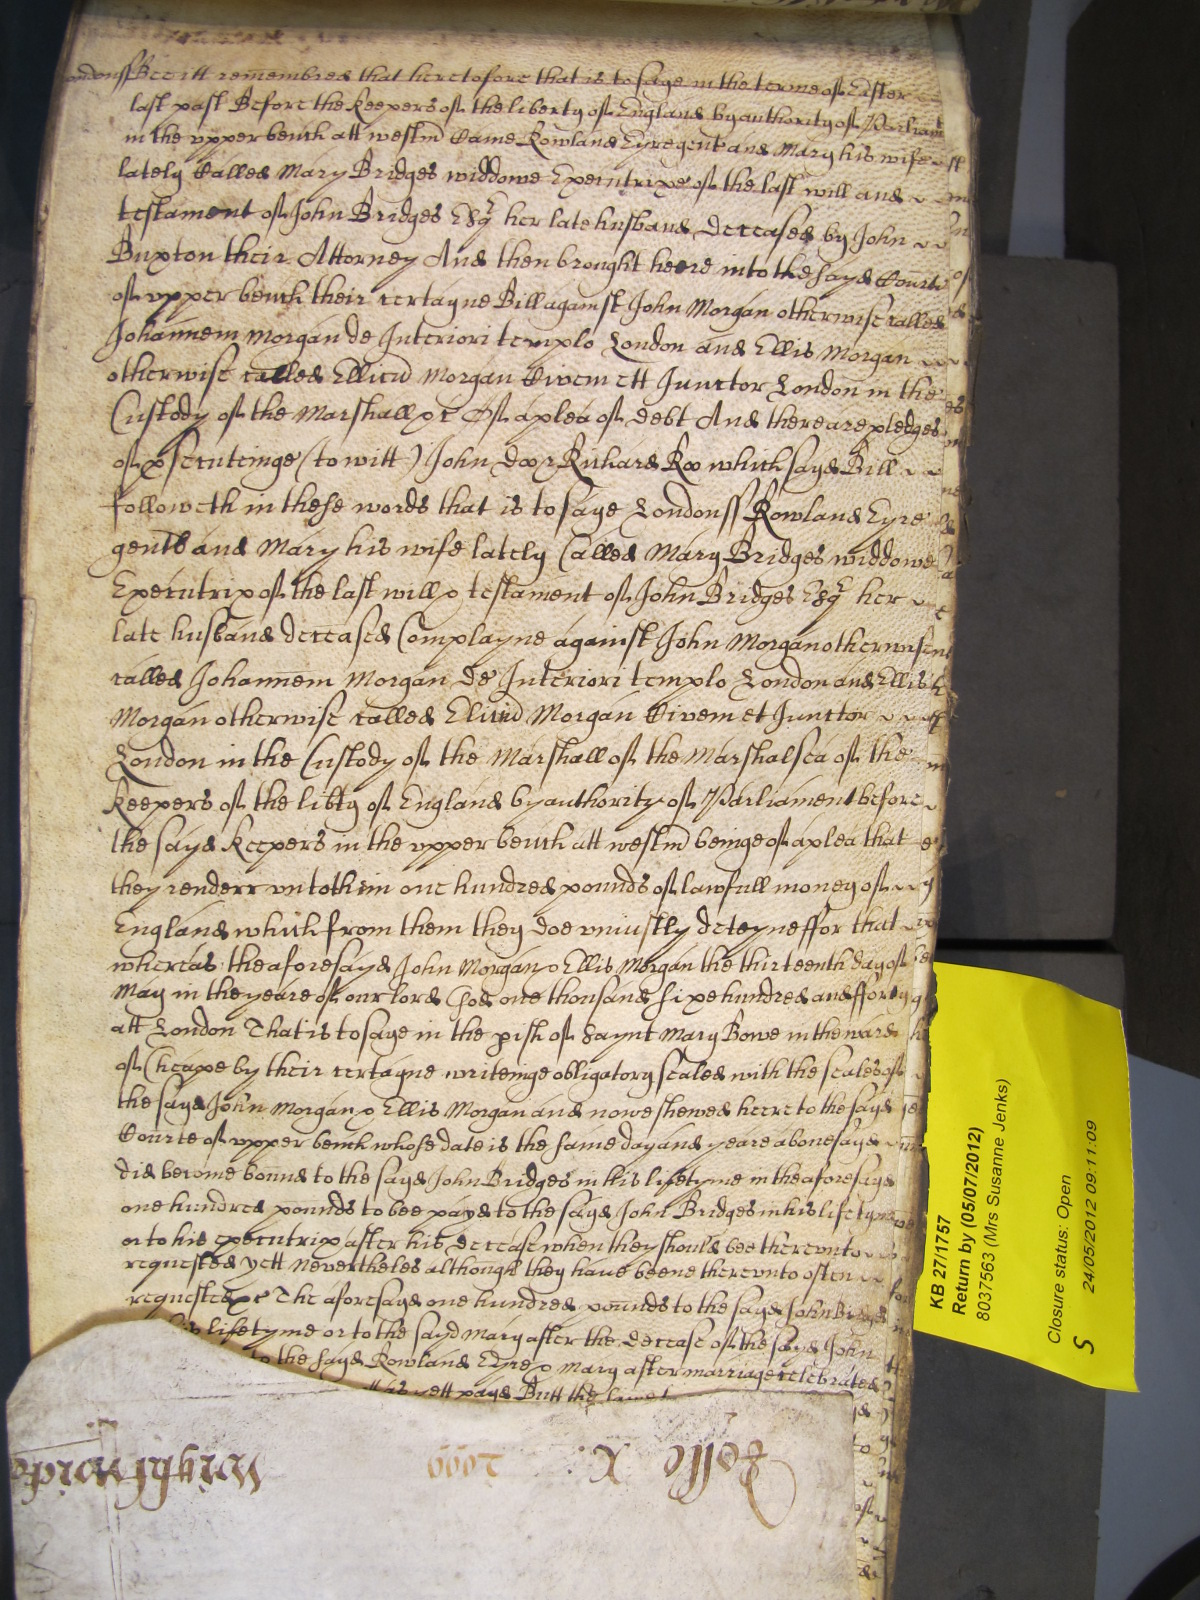 Londonss Bee itt remembred that heretofore that is to saye in the terme of Easter
last past Before the keepers of the liberty of England by authority of Parliamt
in the upper bench att westm Came Rowland Eyre gent and Mary his wife
lately Called Mary Bridges widdowe Executrixe of the last will and
testament of John Bridges Esqr her late husband deceased by John
Buxton their Attorney And then brought heere into the sayd Court
of upper bench their certayne Bill against John Morgan otherwise called
Johannem Morgan de Interiori templo London and Ellis Morgan
otherwise called Ellicū Morgan Civem ett Junctor London in the
Custody of the Marshall &c Of a plea of debt And there are pledges
of pseruteinge (to witt) John doo & Richard Roo which sayd Bill
followeth in these words that is to saye Londonss Rowland Eyre
gentd and Mary his wife lately Called Mary Bridges widdowe
Executrix of the last will & testament of John Bridges Esqr her
late husband deceased Complayne against John Morgan otherwise
called Johannem Morgan de Interiori templo London and Ellis
Morgan otherwise called Elicū Morgan Civem et Junctor
London in the Custody of the Marshall of the Marshalsea of the
keepers of the libty of England by authority of Parliament before
the sayd keepers in the upper bench att westm beinge of a plea that
they renderr unto them one hundred pounds of lawfull money of
England which from them they doe uniustly deteyne ffor that
whereas the aforesayd John Morgan & Ellis Morgan the thirteenth day of
May in the yeare of our lord God one thousand sixe hundred and fforty
att London That is to saye in the pish of Saynt Mary Bowe in the ward
of Cheape by their certayne writeinge obligatory sealed with the seales of
the sayd John Morgan & Ellis Morgan and nowe shewed heere to the sayd
Courte of upper bench whose date is the same day and yeare abovesayd
did become bound to the sayd John Bridges in his lifetyme in the aforesayd
one hundred pounds to bee payd to the sayd John Bridges in his lifetyme
or to his executrix after his decease when they should bee thereunto
requested yett nevertheles although they have beene thereunto often
requested &c The aforesayd one hundred pounds to the sayd John Bridges
his lifetyme or to the sayd Mary after the decease of the sayd John
to the sayd Rowland Eyre & Mary after marriage celebrated
yett payd Butt the same
Rolle X
Wrightwicke
KB 27/1757
Return by (05/07/2012)
8037563 (Mrs Susanne Jenks)
Closure status: Open
S 24/05/2012 09:11:09